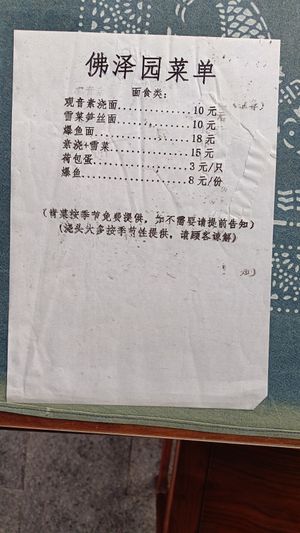 佛泽园菜单
面食类：
观音素浇面..................10元
雪菜笋丝面..................10元
爆鱼面......................18元
素浇+雪菜...................15元
荷包蛋......................3元/只
爆鱼........................8元/份
（青菜按季节免费提供，如不需要请提前告知）
（浇头大多按季节性提供，请顾客谅解）